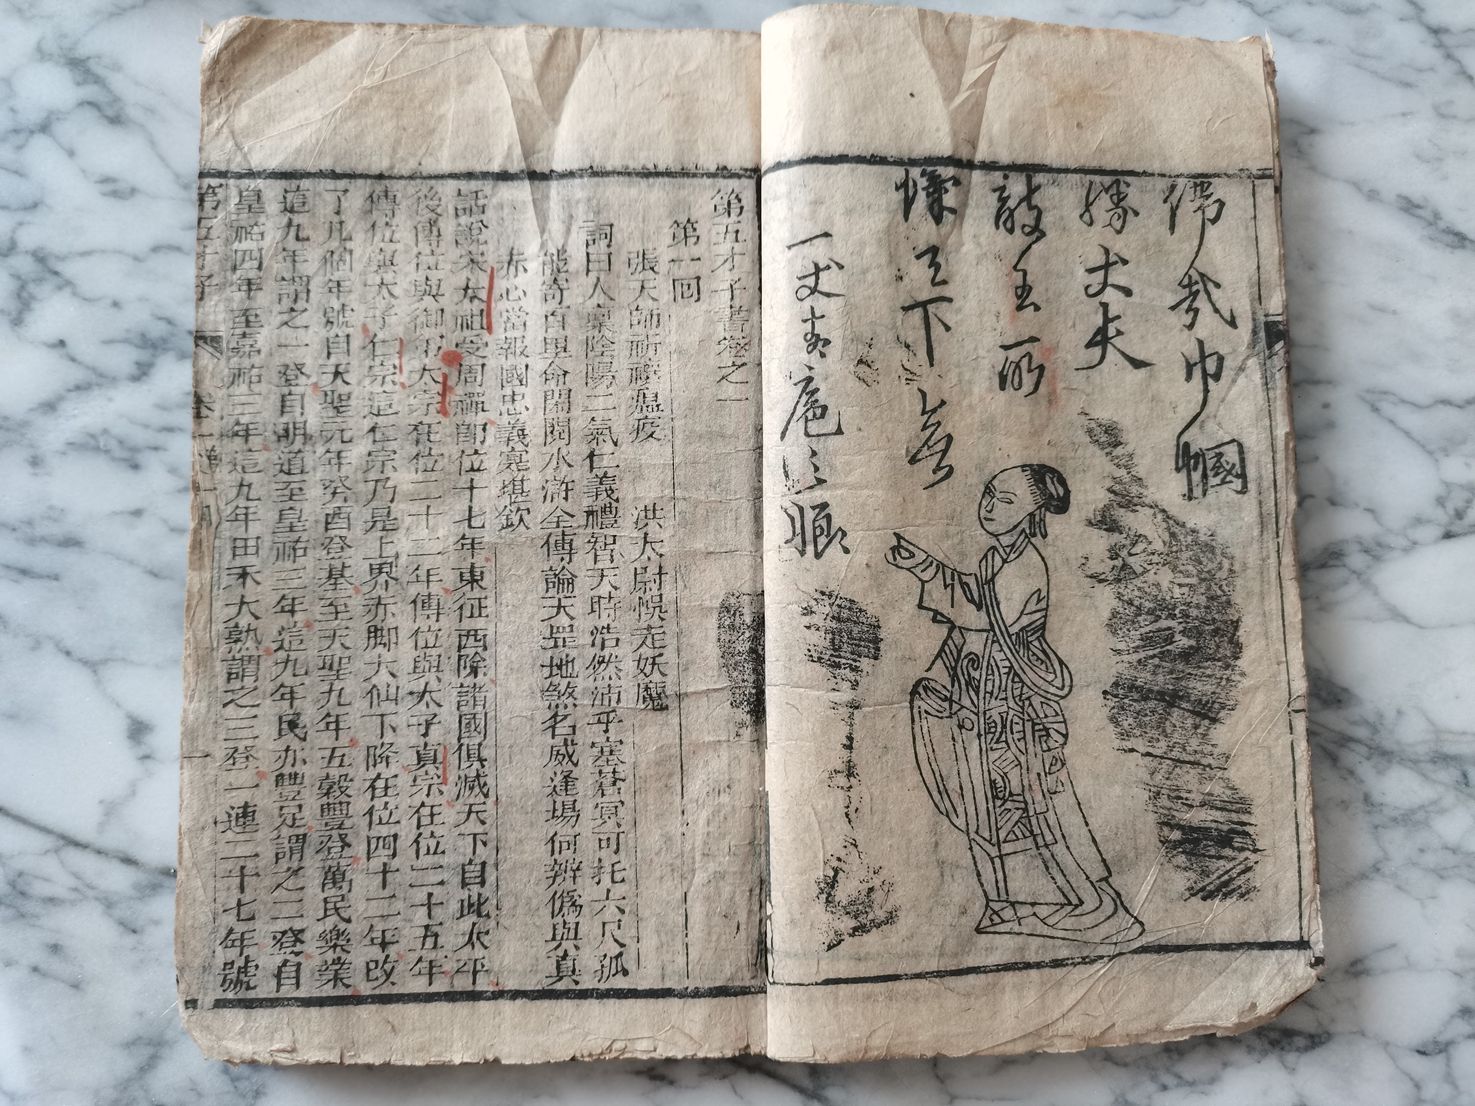 偉哉巾幗
勝丈夫
敵王所
愾天下無
一丈青扈三娘
第五才子書卷之一
第一回
張天師祈禳瘟疫 洪太尉悞走妖魔
詞曰人稟陰陽二氣仁義禮智天時浩然沛乎塞蒼冥可托六尺孤
能寄百里命閒閱水滸全傳論天罡地煞名威逢場何辨僞與真
赤心當報國忠義寔堪欽
話說宋太祖受周禪卽位十七年東征西除諸國俱滅天下自此太平
後傳位與御弟太宗在位二十二年傳位與太子真宗在位二十五年
傳位與太子仁宗這仁宗乃是上界赤脚大仙下降在位四十二年改
了几個年號自天聖元年癸酉登基至天聖九年五穀豐登萬民樂業
這九年謂之一登自明道至皇祐三年這九年民亦豐足謂之二登自
皇祐四年至嘉祐三年這九年田禾大熟謂之三登一連二十七年號
第五才子 卷一 一